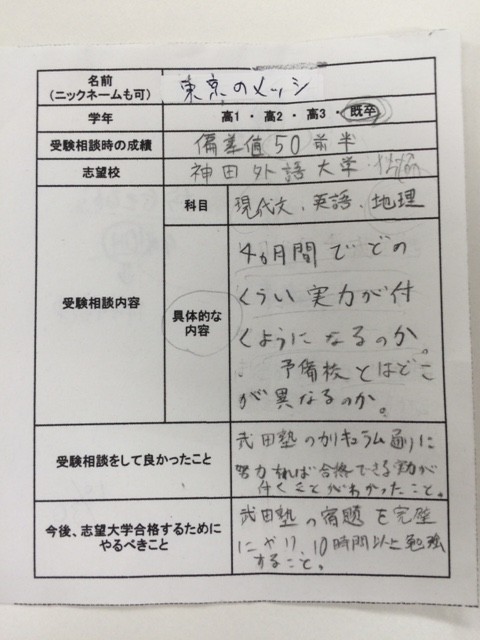 名前
(ニックネームも可)
東京のメッシ
学年
高1・高2・高3・既卒
受験相談時の成績
偏差値50前半
志望校
神田外語大学
受験相談内容
科目
現代文、英語、地理
具体的な
内容
4ヵ月間でどの
くらい実力が付
くようになるのか。
予備校とはどこ
が異なるのか。
受験相談をして良かったこと
武田塾のカリキュラム通りに
努力すれば合格できる実力が
付くことがわかったこと。
今後、志望大学合格するために
やるべきこと
武田塾の宿題を完璧
にやり、10時間以上勉強
すること。